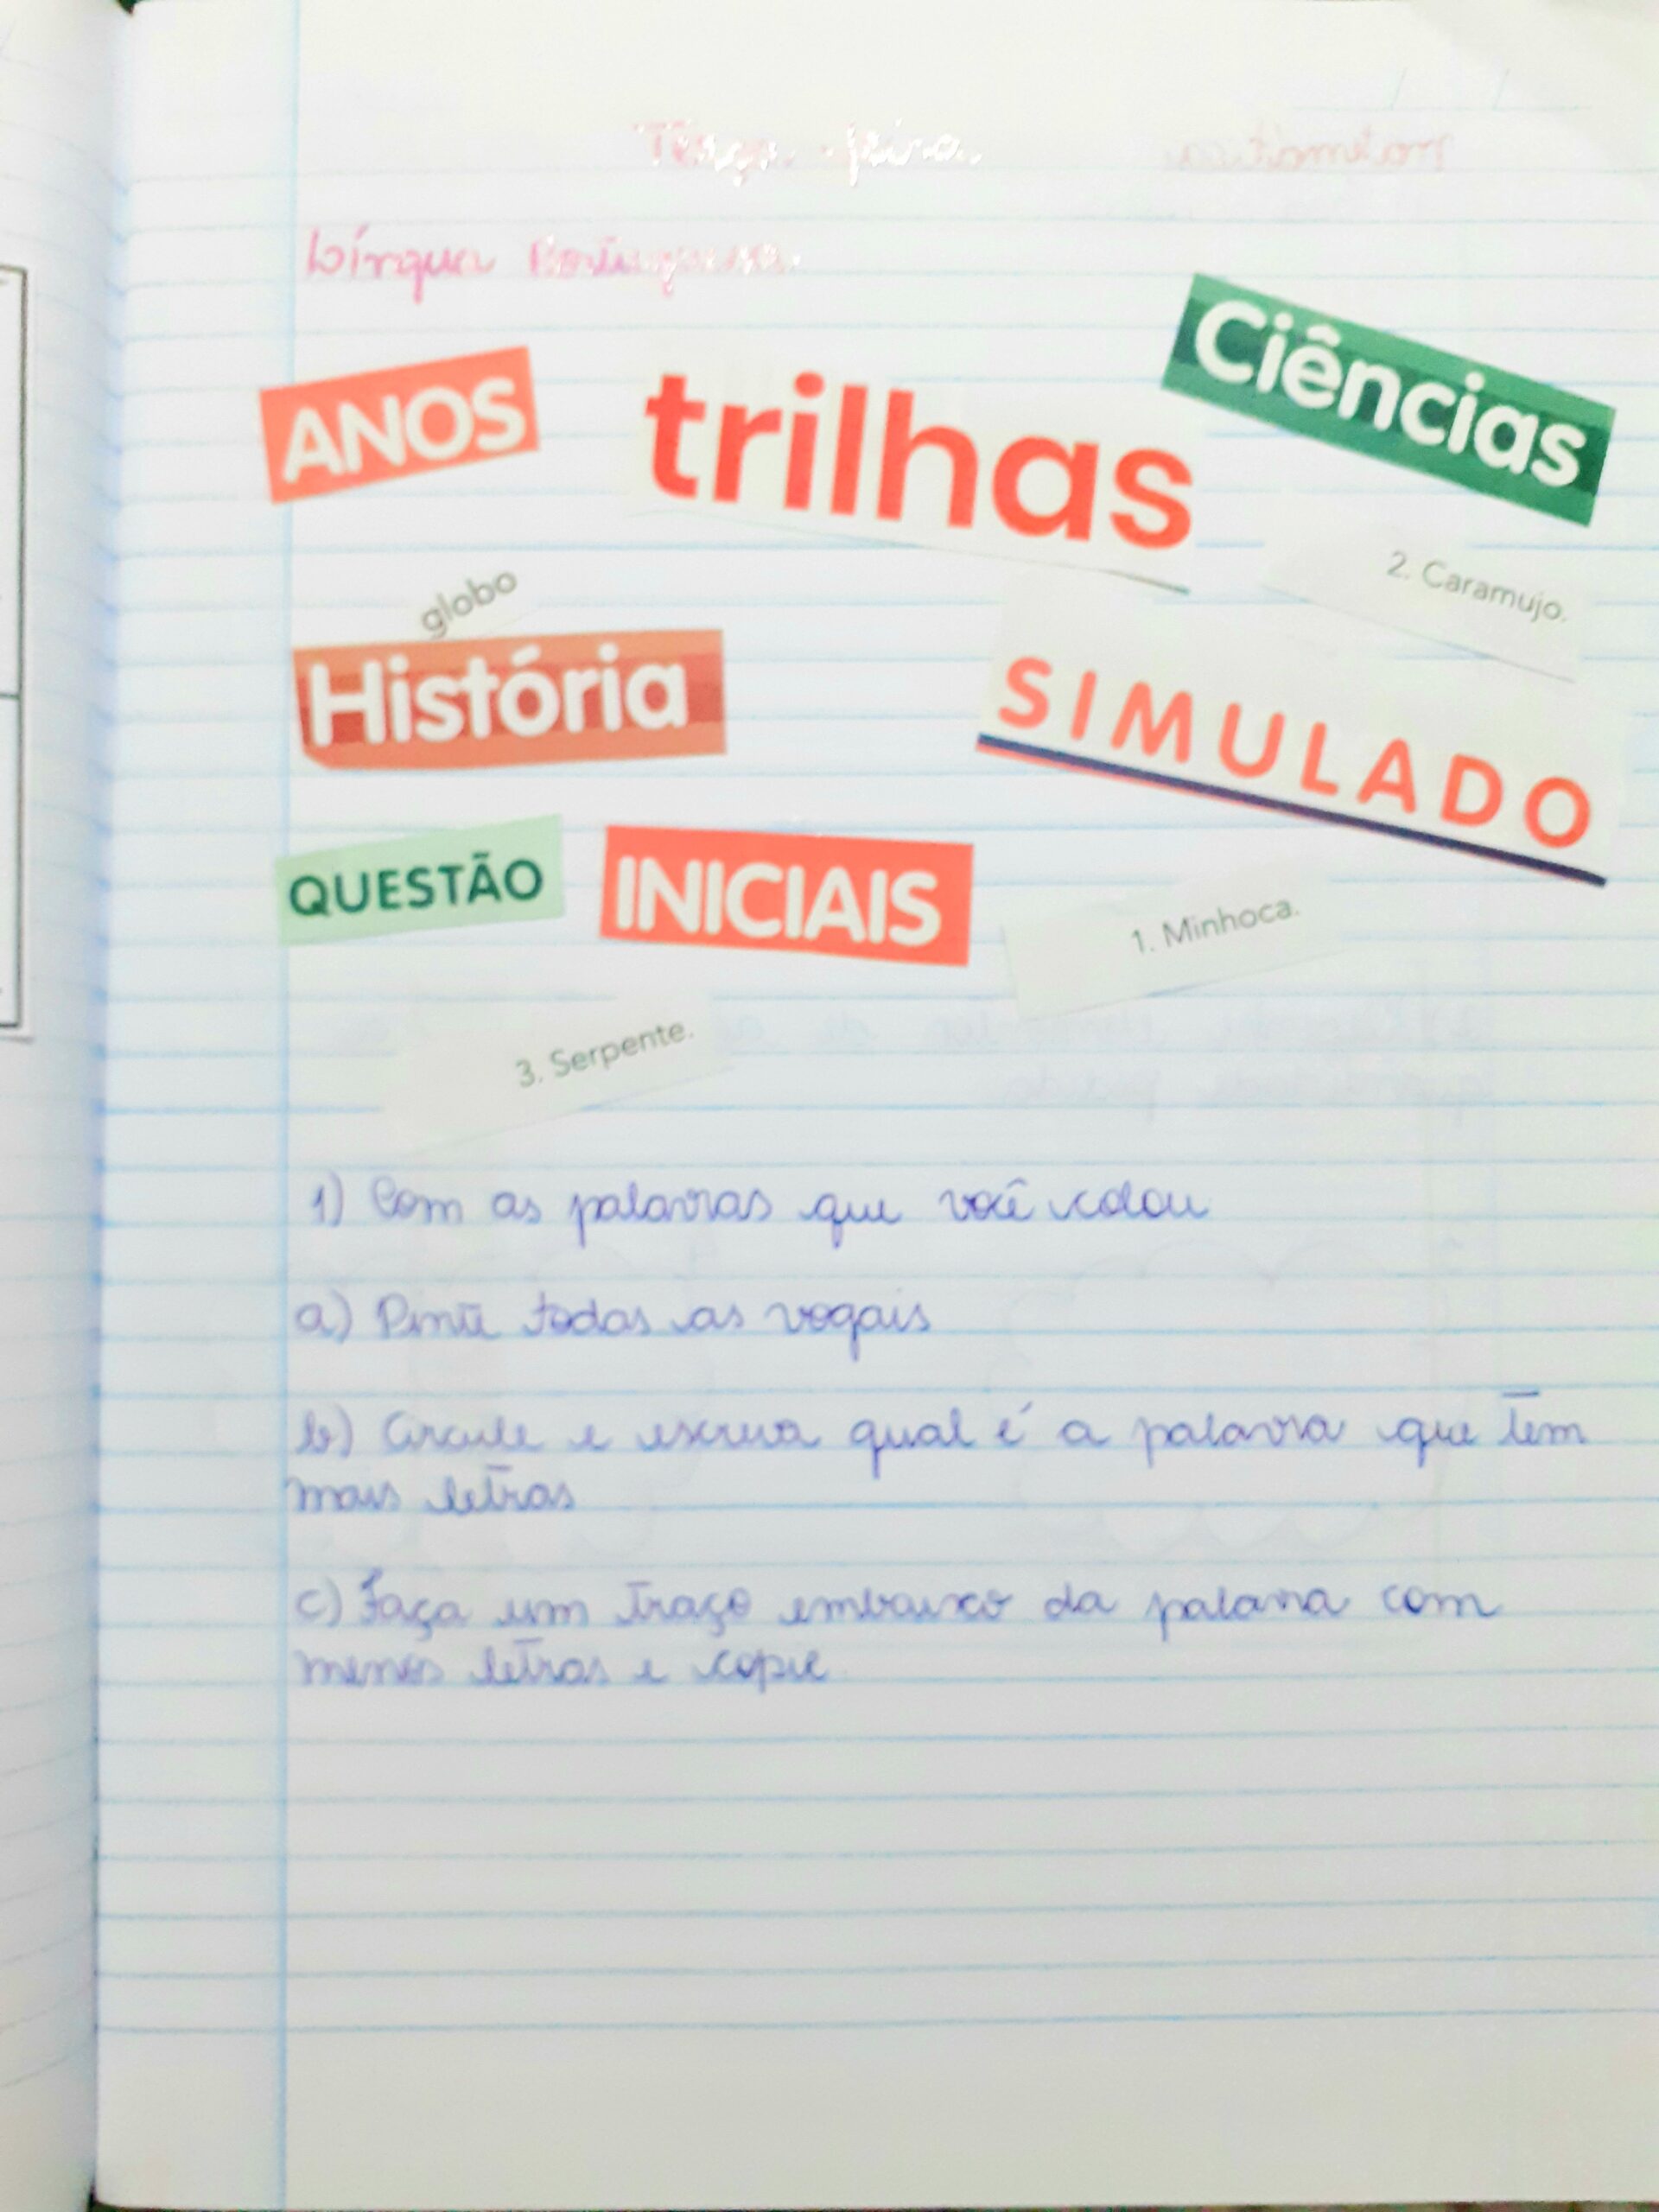 Terça-feira
Língua Portuguesa
ANOS trilhas Ciências
2. Caramujo.
globo
História SIMULADO
QUESTÃO INICIAIS
1. Minhoca.
3. Serpente.
1) Com as palavras que você colou
a) Pinte todas as vogais
b) Circule e escreva qual é a palavra que tem
mais letras
c) Faça um traço embaixo da palavra com
menos letras e copie